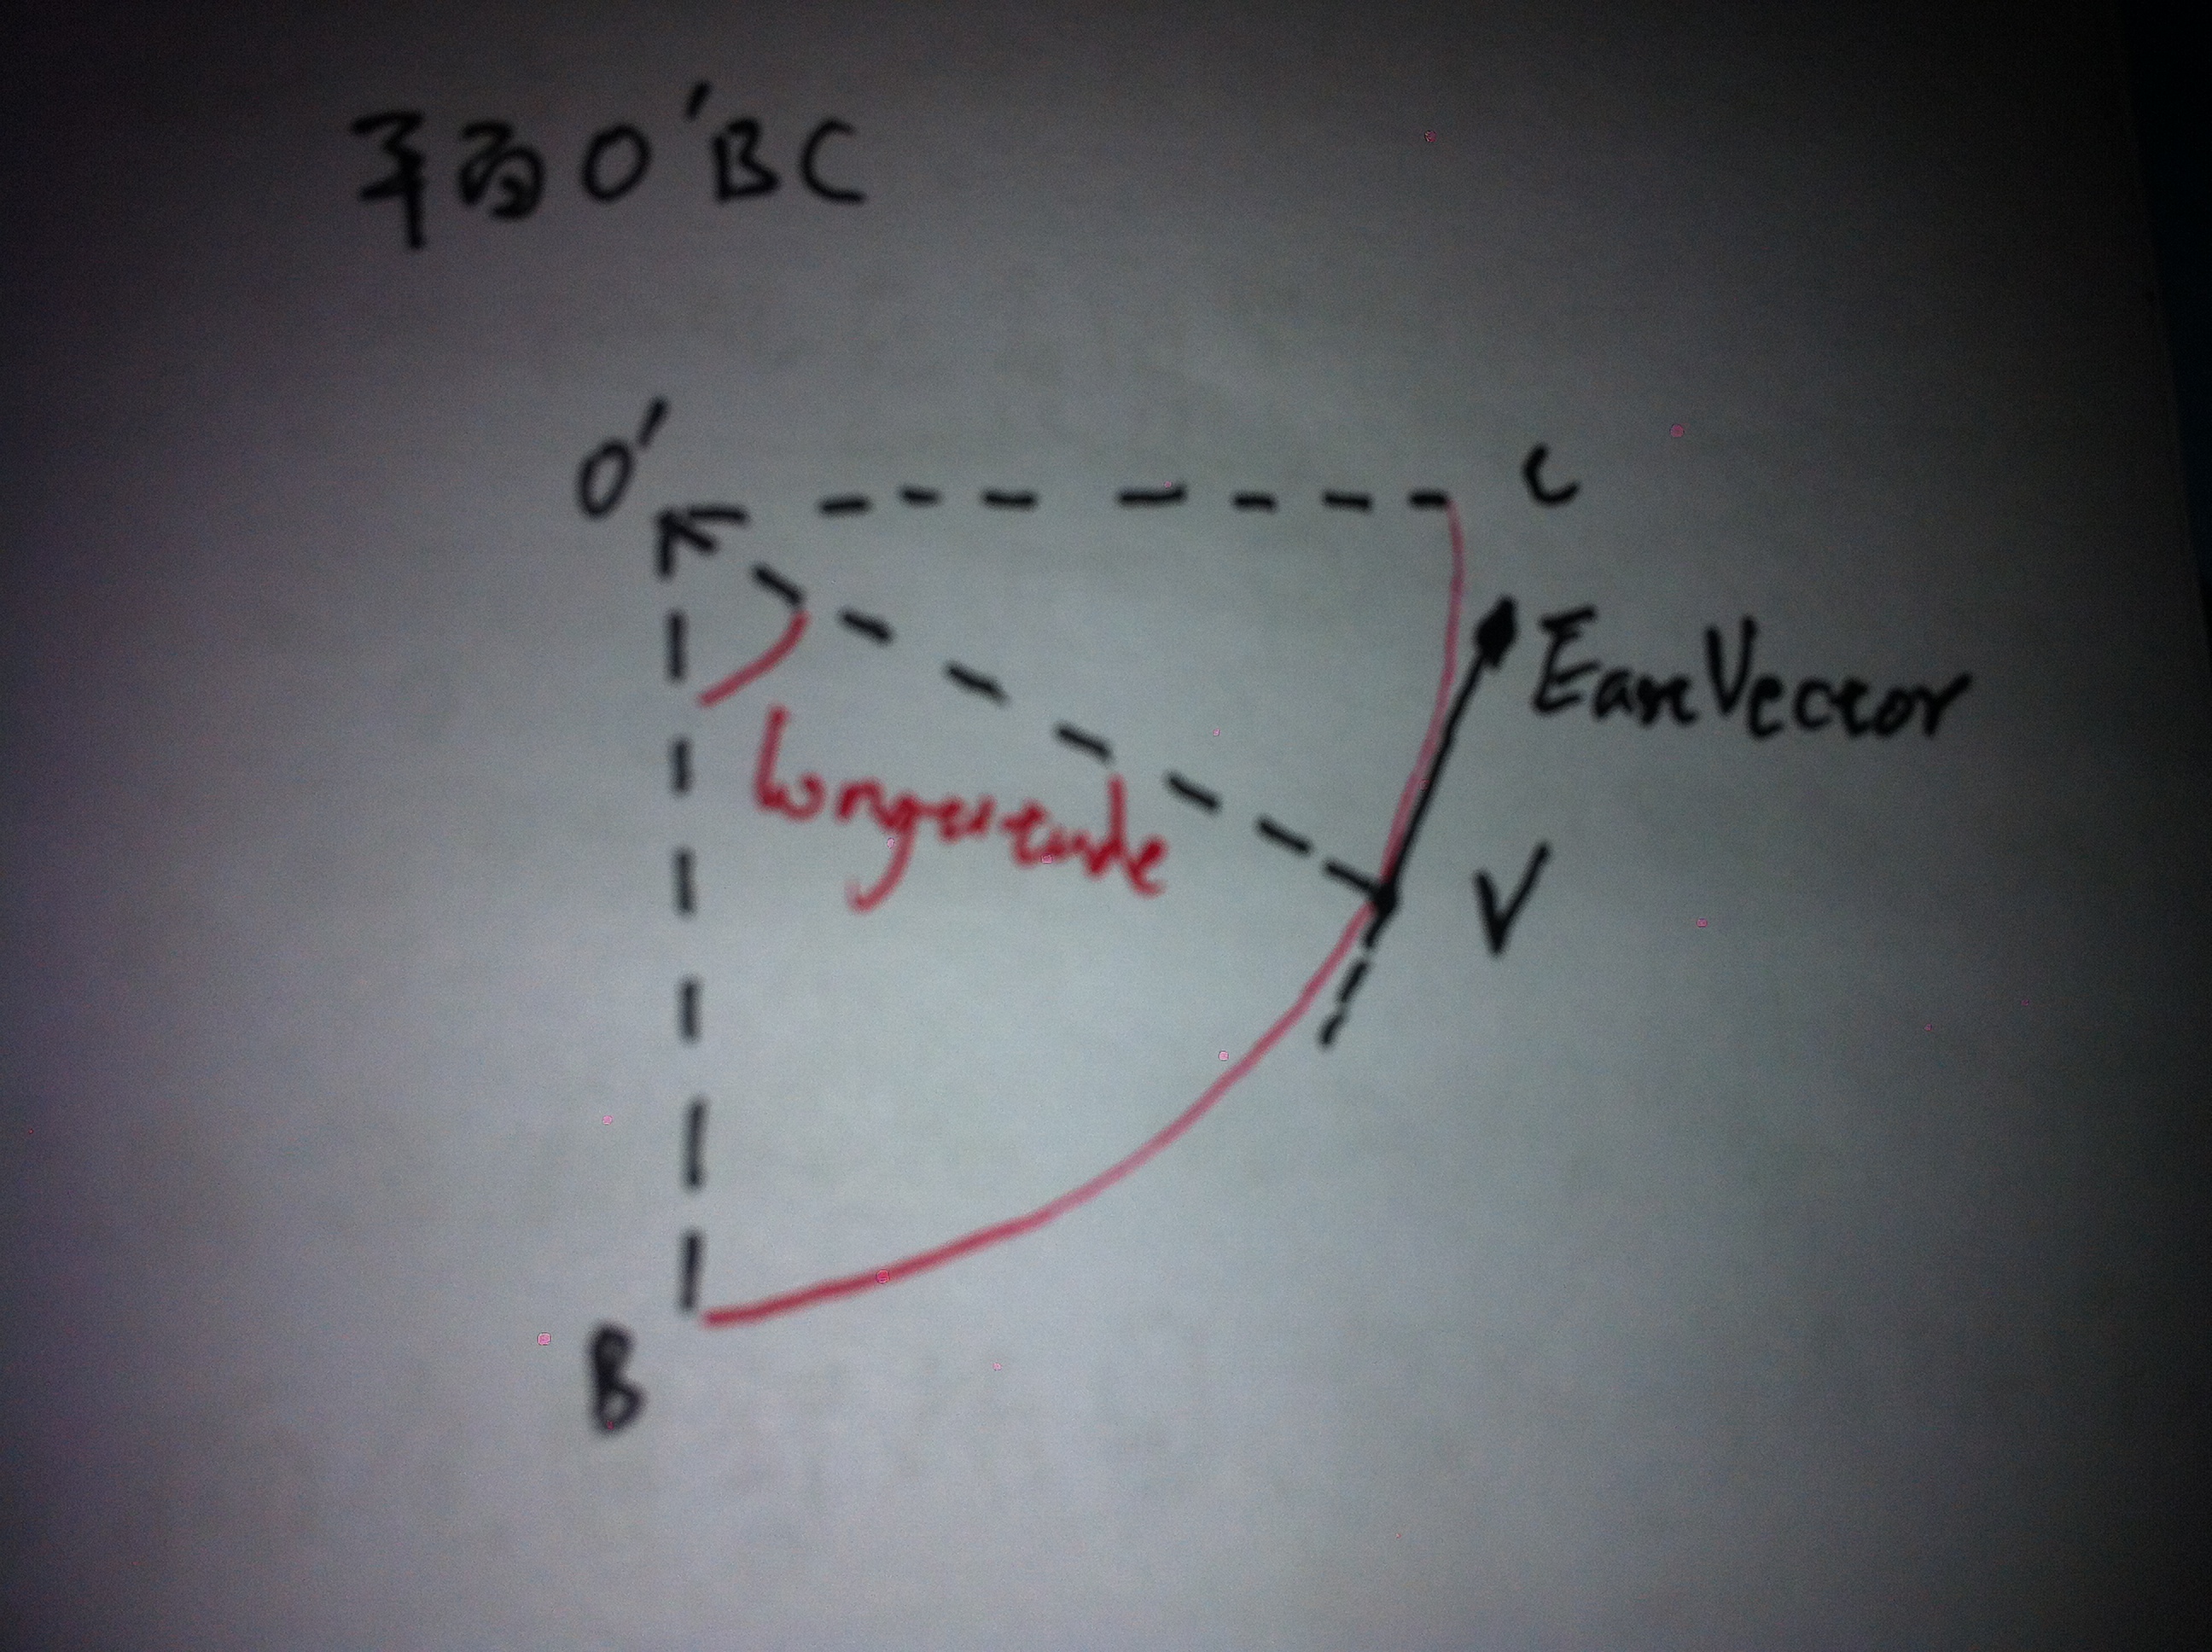 平面O'BC
O'
C
EaseVector
longitude
V
B